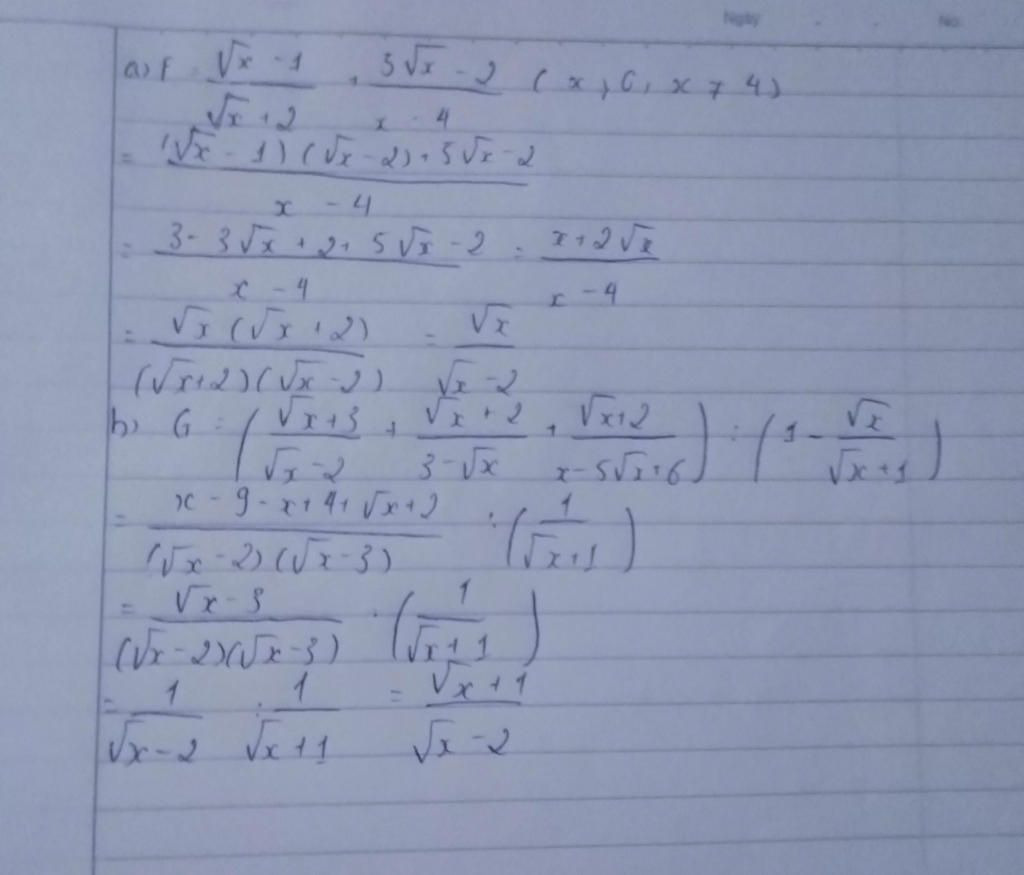 Ngày . . No.
a) F = (√x - 1)/(√x + 2) + (5√x - 2)/(x - 4) ( x > 0, x ≠ 4)
= ((√x - 1)(√x - 2) + 5√x - 2)/(x - 4)
= (3 - 3√x + 2 + 5√x - 2)/(x - 4) = (x + 2√x)/(x - 4)
= (√x(√x + 2))/((√x + 2)(√x - 2)) = √x/(√x - 2)
b) G = ((√x + 3)/(√x - 2) + (√x + 2)/(3 - √x) + (√x + 2)/(x - 5√x + 6)) : (1 - √x/(√x + 1))
= (x - 9 - x + 4 + √x + 2)/((√x - 2)(√x - 3)) : (1/(√x + 1))
= (√x - 3)/((√x - 2)(√x - 3)) : (1/(√x + 1))
= 1/(√x - 2) : 1/(√x + 1) = (√x + 1)/(√x - 2)